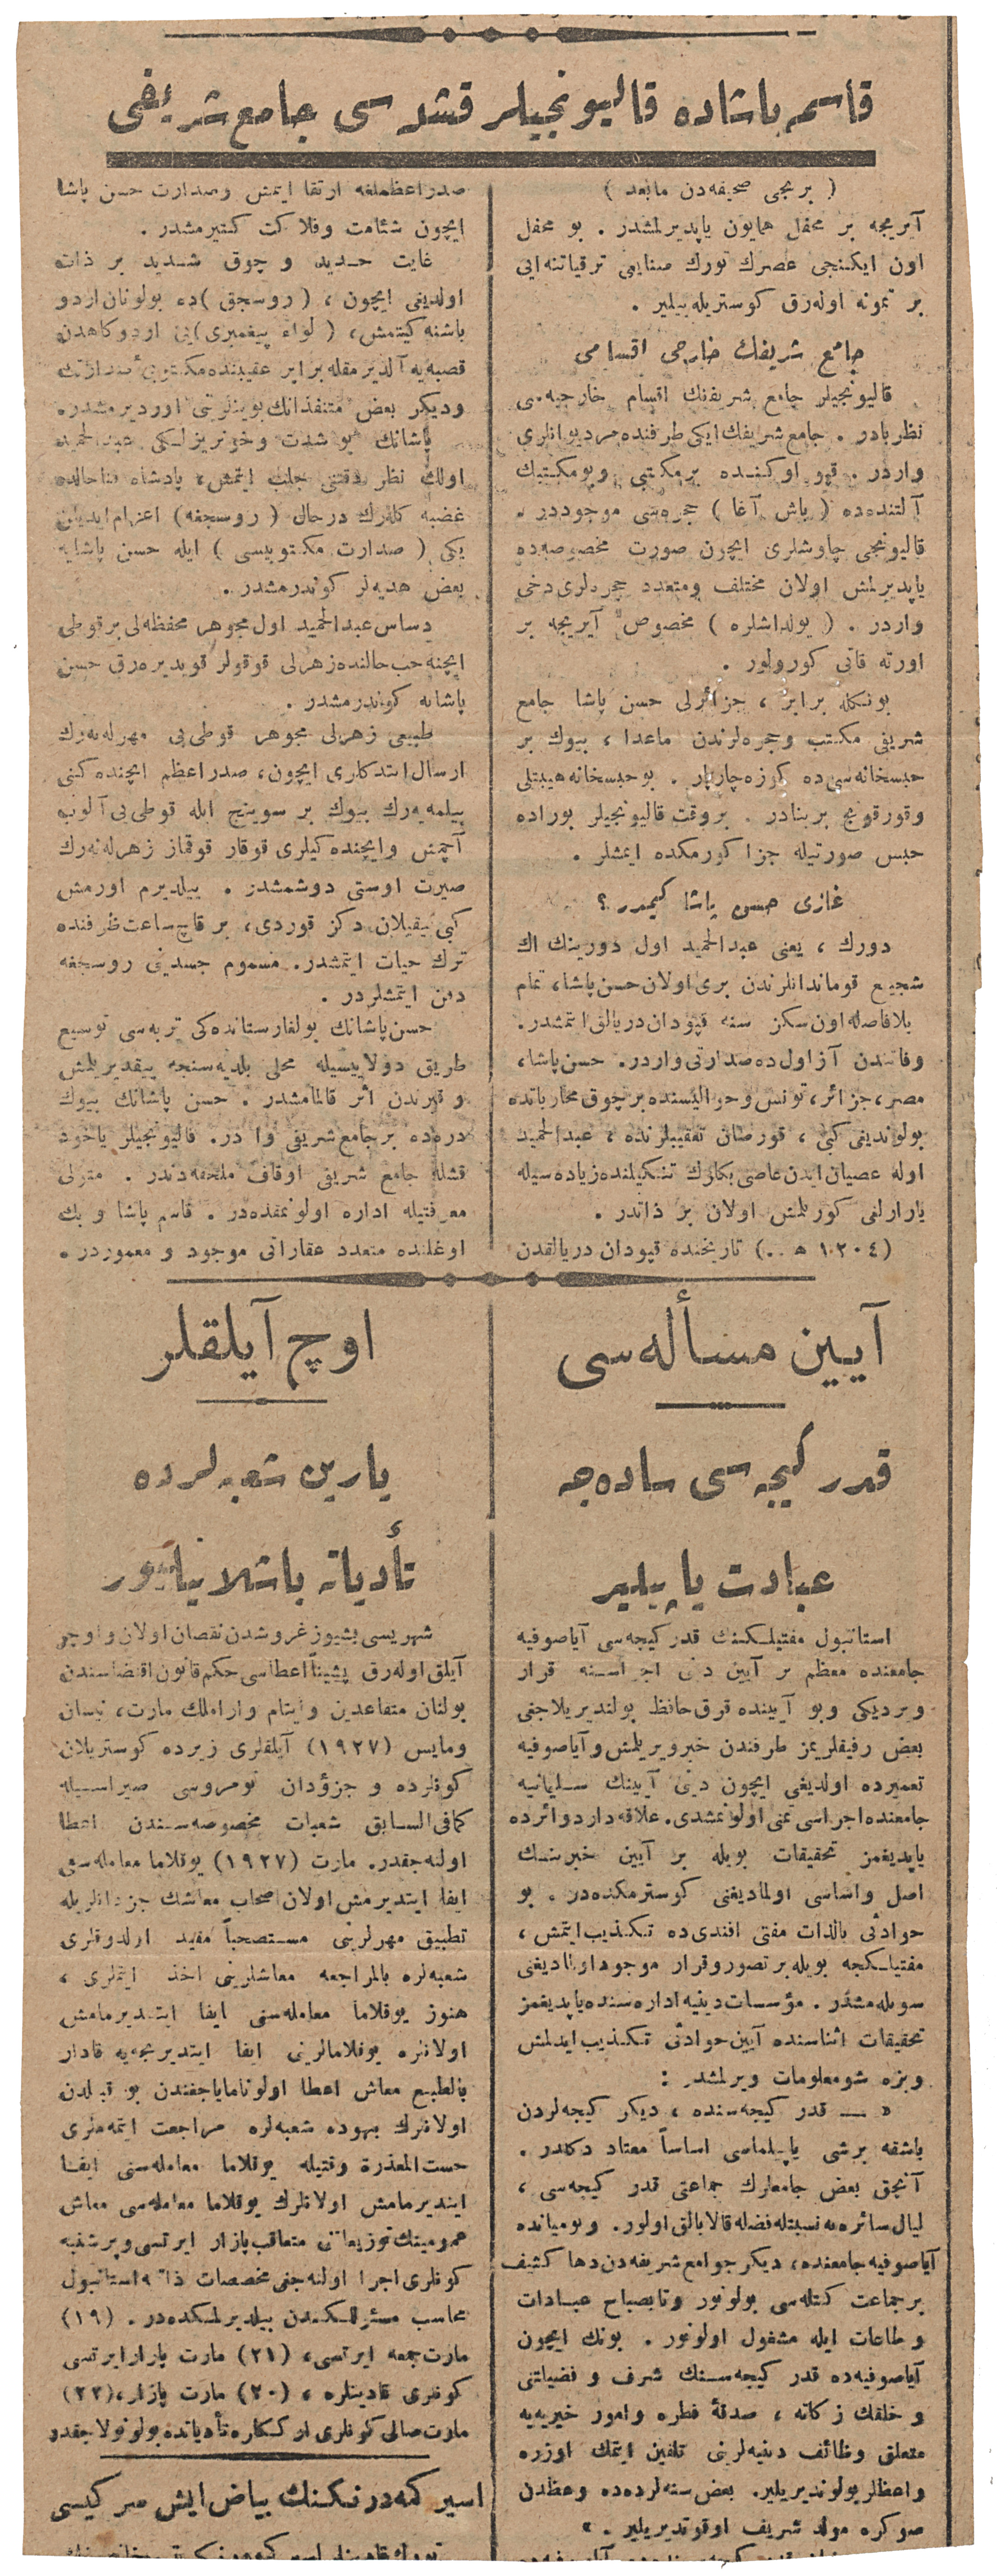 قاسم پاشاده قاليونجيلر قشله سی جامع شريفی
( برنجی صحيفه‌دن مابعد )
آيريجه بر محفل همايون ياپديرلمشدر . بو محفل
اون ايكنجی عصرك تورك صنايعی ترقياتنه ايی
بر نمونه اوله‌رق كوستريله‌بيلير .
جامع شريفك خارجی اقسامی
قاليونجيلر جامع شريفنك اقسام خارجيه‌سی
نظربادر . جامع شريفك ايكی طرفنده مرديوانلری
واردر . قپو اوكنده برمكتبی وبومكتبك
آلتنده‌ده ( باش آغا ) حجره‌سی موجوددر .
قاليونجی چاوشلری ايچون صورت مخصوصه‌ده
ياپديرلمش اولان مختلف ومتعدد حجره‌لری دخی
واردر . ( يولداشلره ) مخصوص آيريجه بر
اورته قاتی كورولور .
بونكله برابر ، جزائرلی حسن پاشا جامع
شريفی مكتب وحجره‌لرندن ماعدا ، بيوك بر
حبسخانه‌سی‌ده كوزه چارپار . بوحبسخانه هيبتلی
وقورقونج بربنادر . بروقت قاليونجيلر بوراده
حبس صورتيله جزا كورمكده ايمشلر .
غازی حسن پاشا كيمدر ؟
دورك ، يعنی عبدالحميد اول دورينك اك
شجيع قوماندانلرندن بری اولان حسن پاشا، تمام
بلافاصله اون سكز سنه قپودان دريالق ايتمشدر.
وفاتندن آز اول‌ده صدارتی واردر. حسن پاشا،
مصر، جزائر، تونس وحواليسنده برچوق محارباتده
بولونديغی كبی ، قورصان تعقيبلرنده ، عبدالحميد
اوله عصيان ايدن عاصی بكلرك تنكيلنده زياده‌سيله
يارارلغی كورلمش اولان بر ذاتدر .
(١٢٠٤ ه ..) تاريخنده قپودان دريالقدن
صدراعظملغه ارتقا ايتمش وصدارت حسن پاشا
ايچون شئامت وفلاكت كتيرمشدر .
غايت حديد و چوق شديد بر ذات
اولديغی ايچون ، (روسجق)ده بولونان اردو
باشنه كيتمش، (لواء پيغمبری)يی اردوكاهدن
قصبه‌يه آلديرمقله برابر عقيبنده مكتوبی صدارتك
وديكر بعض متنفذانك بوينلرينی اورديرمشدر.
پاشانك بو شدت وخونريزلكی عبدالحميد
اولك نظر دقتنی جلب ايتمش، پادشاه فناحالده
غضبه كله‌رك درحال (روسجغه) اعزام ايديلن
يكی ( صدارت مكتوبيسی ) ايله حسن پاشايه
بعض هديه‌لر كوندرمشدر .
دساس عبدالحميد اول مجوهر محفظه‌لی برقوطی
ايچنه حب حالنده زهرلی قوقولر قويديره‌رق حسن
پاشايه كوندرمشدر .
طبيعی زهرلی مجوهر قوطی‌يی مهرله‌يه‌رك
ارسال ايتدكلری ايچون، صدراعظم ايچنده‌كنی
بيلميه‌رك بيوك بر سوينج ايله قوطی‌يی آلوب
آچمش وايچنده‌كيلری قوقار قوقماز زهرله‌نه‌رك
صيرت اوستی دوشمشدر . ييلديرم اورمش
كبی ييقيلان دكز قوردی، بر قاچ ساعت ظرفنده
ترك حيات ايتمشدر. مسموم جسدينی روسجغه
دفن ايتمشلردر .
حسن پاشانك بولغارستانده‌كی تربه‌سی توسيع
طريق دولاييسيله محلی بلديه‌سنجه ييقديريلمش
و قبرندن اثر قالمامشدر . حسن پاشانك بيوك
دره‌ده برجامع شريفی واردر. قاليونجيلر ياخود
قشله جامع شريفی اوقاف ملحقه‌دندر . متولی
معرفتيله اداره اولونمقده‌در . قاسم پاشا و بك
اوغلنده متعدد عقاراتی موجود و معموردر .
آيين مسأله‌سی
قدر كيجه‌سی ساده‌جه
عبادت ياپيلير
استانبول مفتيلكنك قدر كيجه‌سی آياصوفيه
جامعنده معظم بر آيين دينی اجراسنه قرار
ويرديكی وبو آيينده قرق حافظ بولنديريلاجغی
بعض رفيقلريمز طرفندن خبر ويريلمش وآياصوفيه
تعميرده اولديغی ايچون دينی آيينك سليمانيه
جامعنده اجراسی تمنی اولونمشدی. علاقه‌دار دوائرده
ياپديغمز تحقيقات بويله بر آيين خبرينك
اصل واساسی اولماديغنی كوسترمكده‌در . بو
حوادثی بالذات مفتی افندی ده تكذيب ايتمش ،
مفتيلكجه بويله بر تصور و قرار موجود اولماديغنی
سويله‌مشدر. مؤسسات دينيه اداره‌سنده ياپديغمز
تحقيقات اثناسنده آيين حوادثی تكذيب ايدلمش
وبزه شو معلومات ويرلمشدر :
« — قدر كيجه‌سنده ، ديكر كيجه‌لردن
باشقه برشی ياپيلماسی اساساً معتاد دكلدر .
آنجق بعض جامعلرك جماعتی قدر كيجه‌سی ،
ليال سائره‌يه نسبتله فضله قالابالق اولور. وبوميانده
آياصوفيه جامعنده، ديكر جوامع شريفه‌دن دها كثيف
برجماعت كتله‌سی بولونور وتابصباح عبادات
وطاعات ايله مشغول اولونور . بونك ايچون
آياصوفيه‌ده قدر كيجه‌سنك شرف و فضيلتنی
و خلقك زكاته ، صدقهٔ فطره وامور خيريه‌يه
متعلق وظائف دينيه‌لرينی تلقين ايتمك اوزره
واعظلر بولونديريلير. بعض سنه‌لرده‌ده وعظدن
صوكره مولد شريف اوقوتديريلير . »
اوچ آيلقلر
يارين شعبه‌لرده
تأدياته باشلانيليور
شهريسی بشيوز غروشدن نقصان اولان و اوچر
آيلق اوله‌رق پيشيناً اعطاسی حكم قانون اقتضاسندن
بولنان متقاعدين وايتام واراملك مارت، نيسان
ومايس (١٩٢٧) آيلقلری زيرده كوستريلان
كونلرده و جزؤدان نومروسی صيراسيله
كمافی‌السابق شعبات مخصوصه‌سندن اعطا
اولنه‌جقدر. مارت (١٩٢٧) يوقلاما معامله‌سنی
ايفا ايتديرمش اولان اصحاب معاشك جزدانلريله
تطبيق مهرلرينی مستصحباً مقيد اولدوقلری
شعبه‌لره بالمراجعه معاشلرينی اخذ ايتملری ،
هنوز يوقلاما معامله‌سنی ايفا ايتديرمامش
اولانلره يوقلامالرينی ايفا ايتديرنجه‌يه قادار
بالطبع معاش اعطا اولونامايا‌جغندن بو قبيلدن
اولانلرك بيهوده شعبه‌لره مراجعت ايتمه‌ملری
حسب‌المعذرة وقتيله يوقلاما معامله‌سنی ايفا
ايتديرمامش اولانلرك يوقلاما معامله‌سی معاش
عموميه‌نك توزيعاتنی متعاقب پازار ايرتسی وپرشنبه
كونلری اجرا اولنه‌جغی مخصصات ذاتيه استانبول
محاسبه‌ مسئوللكندن بيلديرلمكده‌در . (١٩)
مارت جمعه ايرتسی، (٢١) مارت پازار ايرتسی
كونلری قادينلره ، (٢٠) مارت پازار، (٢٢)
مارت صالی كونلری ارككلره تأدياتده بولونولاجقدر
اسيركمه درنكنك بياض ايش سركيسی